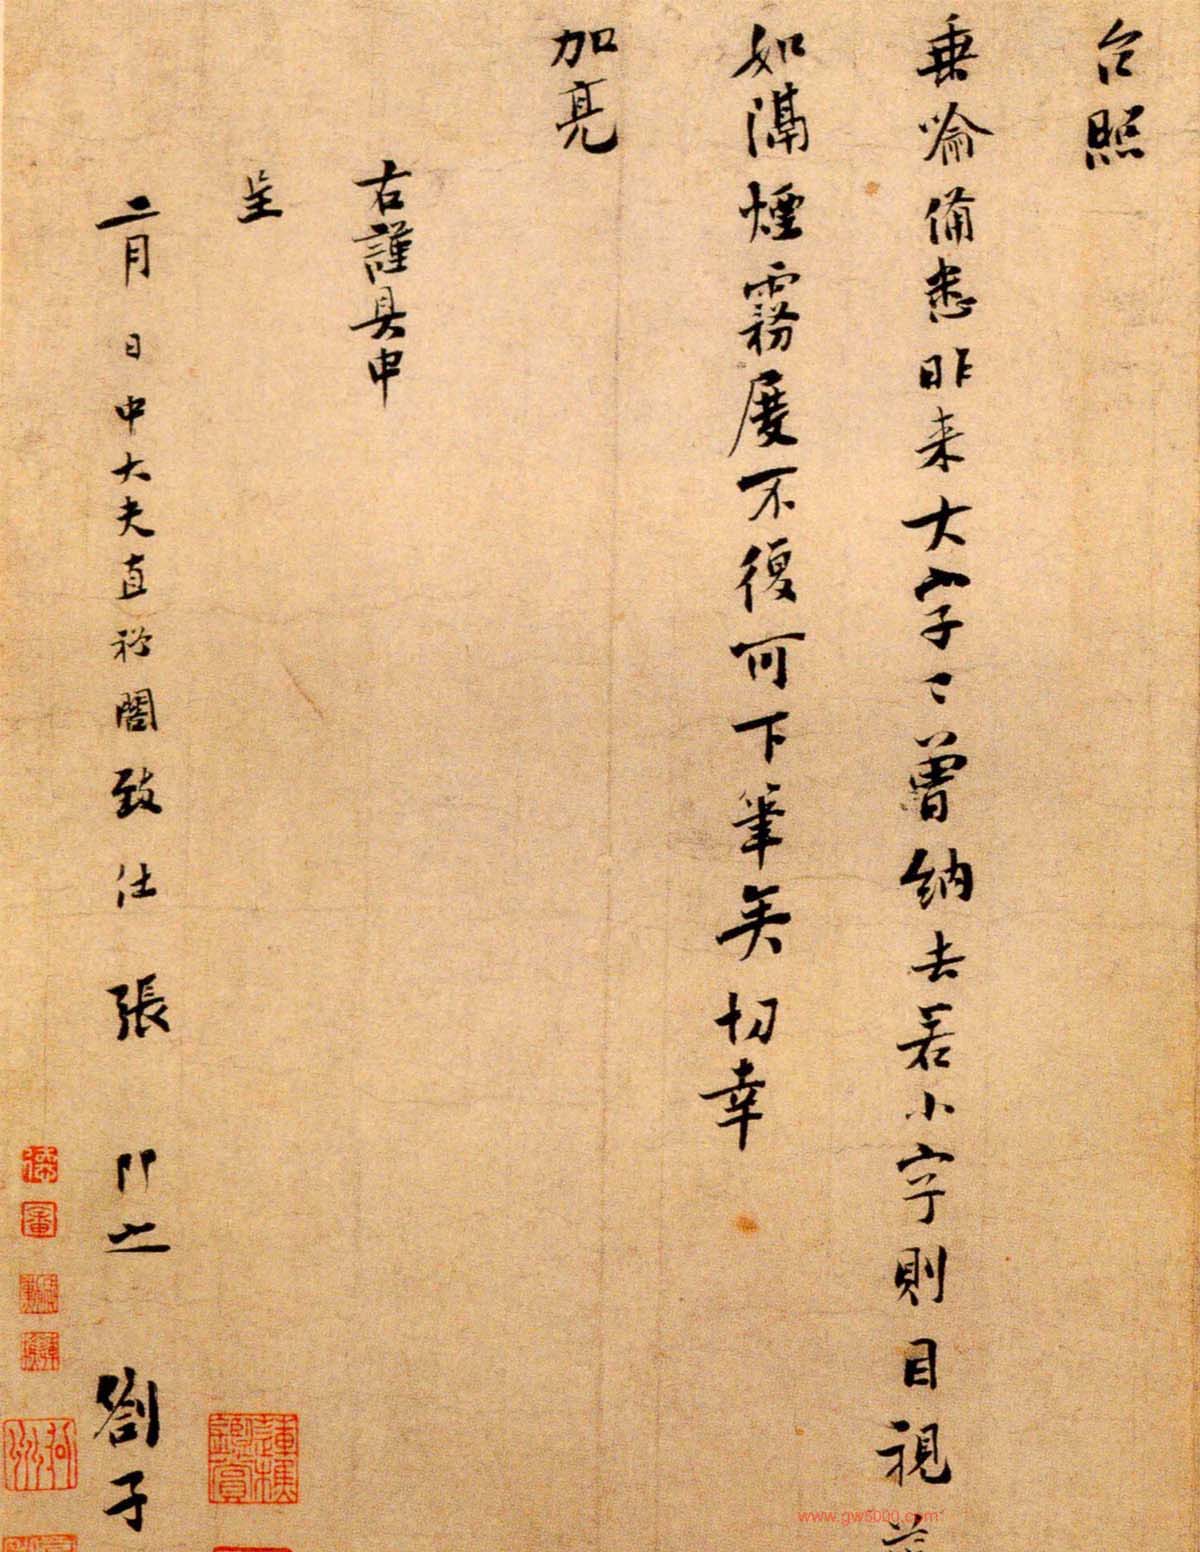 台照
垂喻備悉昨来大字曾納去若小字則目視
如隔煙霧屡不復可下筆矣切幸
加亮
右謹具申
呈
二月 日中大夫直祕閣致仕張 即之 劄子
連樵鑑賞
www.gw5000.com